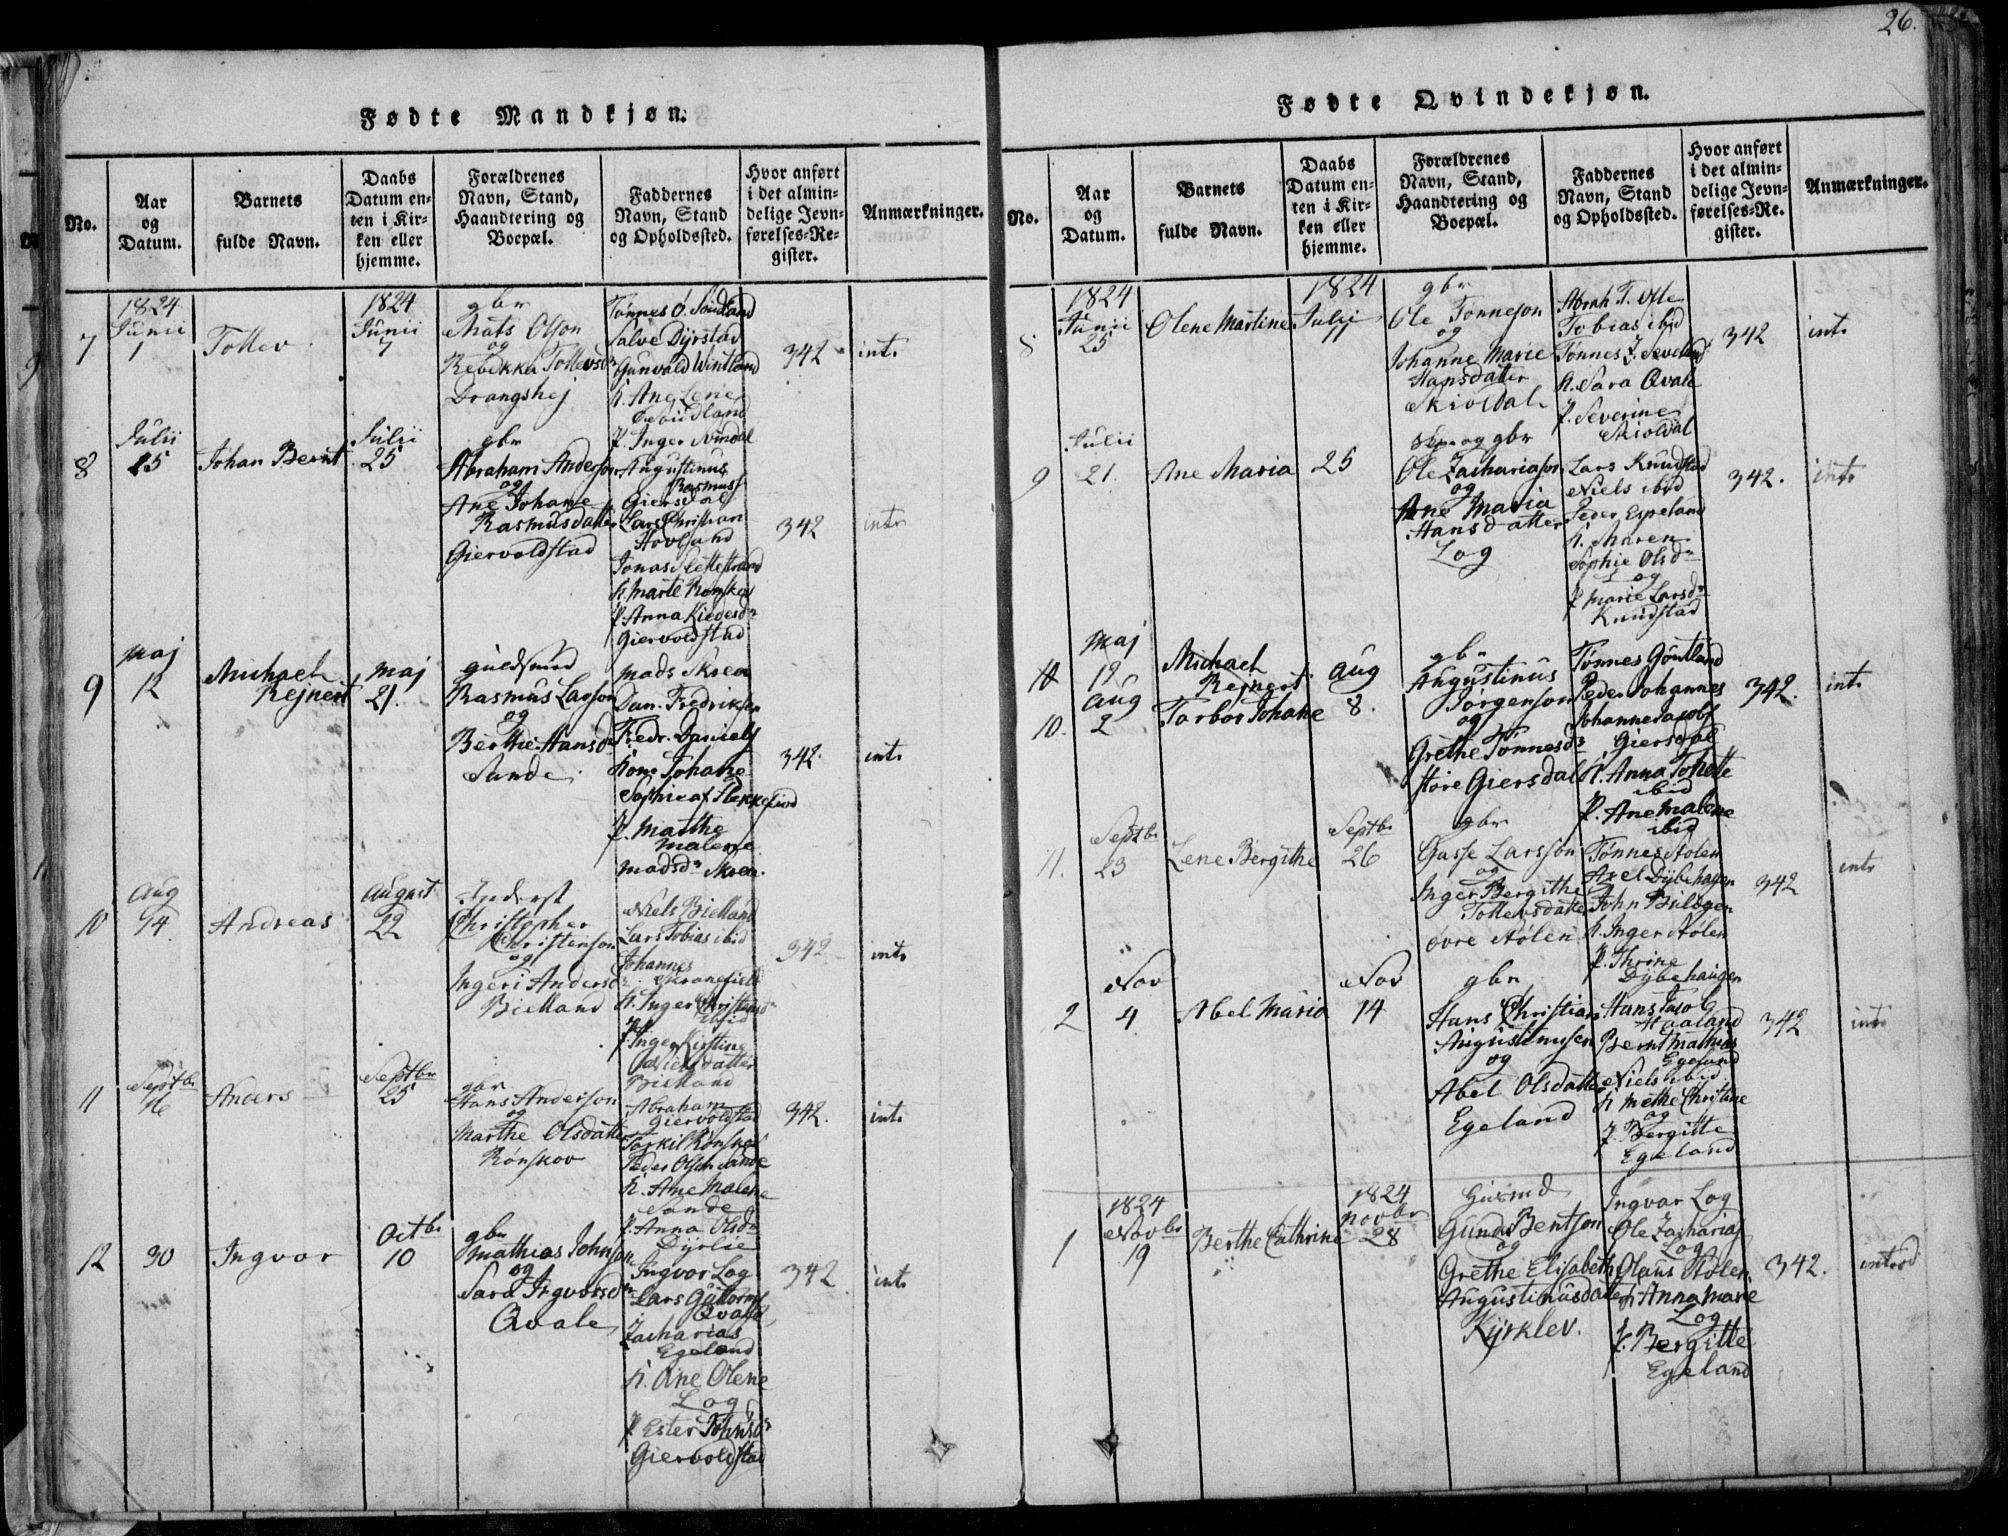 26.
Fødte Mandkjøn.
No.
Aar og Datum.
Barnets fulde Navn.
Daabs Datum enten i Kirken eller hjemme.
Forældrenes Navn, Stand, Haandtering og Boepæl.
Faddernes Navn, Stand og Opholdssted.
Hvor anført i det almindelige Jevnførelses-Register.
Anmærkninger.
7
1824
Junii
1
Tollev
1824
Junii
7
gbr
Mats Olson
og
Rebekka Tollevsdr
Drangshej
Tønnes O. Søudland
Salve Dyrstad
Gunvald Windland
k. Ane Lene
Søudland
P. Inger Svindal
342
intr
8
Julii
15
Johan Bernt
Julii
25
gbr
Abraham Anderson
og
Ane Johane
Rasmusdatter
Giervoldstad
Augustinus
Rasmus
Giersdal
Lars Christian
Hovland
Jonas Slettestrand
k. Marte Rønskov
P. Anna Kiedesdr
Giervoldstad
342
intr
9
Maj
12
Michael
Rejnert
Maj
21.
Rasmus Larson
og
Berthe Hansdr
Sande
Mads Skoen
Dan. Fredriksen
Fredr. Daniels
kone Johane
Sophie af Flekkefiord
P. Marthe
Malene
Madsdr Skoen.
342
intr
10
Aug
14
Andreas
August
22
Inderst
Christopher
Christenson
og
Ingeri Andersdr
Bielland
Niels Bielland
Lars Tobias ibid
Johannes
k. Inger Christensdr
ibid
P. Inger Kirstine
Nielsdatter
Bielland
342
intr
11
Septbr
16
Anders
Septbr
25
gbr
Hans Anderson
og
Marthe Olsdatter
Rønskov
Abraham
Giervoldstad
Torkil Rønskov
Peder Olsen Sande
k. Ane Malene
Sande
P. Anna Olsdr
Dyrlie
342.
intr
12
30
Ingvor
Octbr
10
gbr
Mathias Johnson
og
Sara Ingvorsdr
Qvale
Ingvor Log
Lars Guttorms
Qvale
Zacharias
Egeland
k. Ane Olene
Log
P. Ester Johnsdr
Giervoldstad
342
intr
Fødte Qvindekjøn.
No.
Aar og Datum.
Barnets fulde Navn.
Daabs Datum enten i Kirken eller hjemme.
Forældrenes Navn, Stand, Haandtering og Boepæl.
Faddernes Navn, Stand og Opholdssted.
Hvor anført i det almindelige Jevnførelses-Register.
Anmærkninger.
8
1824
Junii
25
Olene Martine
1824
Julii
11
gbr
Ole Tønneson
og
Johanne Marie
Hansdatter
Skioldal
Abrah. T. Ofte
Tobias ibid
Tønnes J. Seveland
k. Sara Qvale
P. Severine
Skioldal
342
intr
9
Julii
21.
Ane Maria
25
og gbr
Ole Zachariason
og
Ane Maria
Hansdatter
Log
Lars Knudstad
Niels ibid
Peder Espeland
k. Maren
Sophie Olsdr
Log
P. Marie Larsdr
Knudstad
342.
intr
10
Maj
12
Michael
Rejnert
10.
Aug
2
Tarbor Johane
Aug
8.
gbr
Augustinus
Jørgenson
og
Grethe Tønnesdr
støre Giersdal
Tønnes Gøutland
Peder Johannes
Johanne Jacobs
Giersdal
k. Anna Tohette
ibid
P. Ane Malene
ibid
342.
intr
11.
Septbr
23
Lene Bergithe
Septbr
26
gbr
Gasse Larsson
og
Inger Bergithe
Tollevsdatter
øvre Stølen
Tønnes Stølen
Axel Dybehaugen
John Bildøen
k. Inger Stølen
P. Thrine
Dybehaugen
342
intr
2
Nov
4
Abel Maria
Nov
14
gbr
Hans Christian
Augustinusen
og
Abel Olsdatter
Egeland
Hans Jacob
Haaland
Bernt Mathias
Egeland
Niels ibid
k. Methe Christine
og
P. Bergitte
Egeland
342
intr
1
1824
Novbr
19
Berthe Cathrine
1824
Novbr
28
Husmd
Gunde Bentson
og
Grethe Elisabeth
Augustinusdatter
Kyrklev.
Ingvar Log
Ole Zacharias
Log
Olaus Stølen
k. Anna Marie
Log
P. Bergitte
Egeland
342.
introd